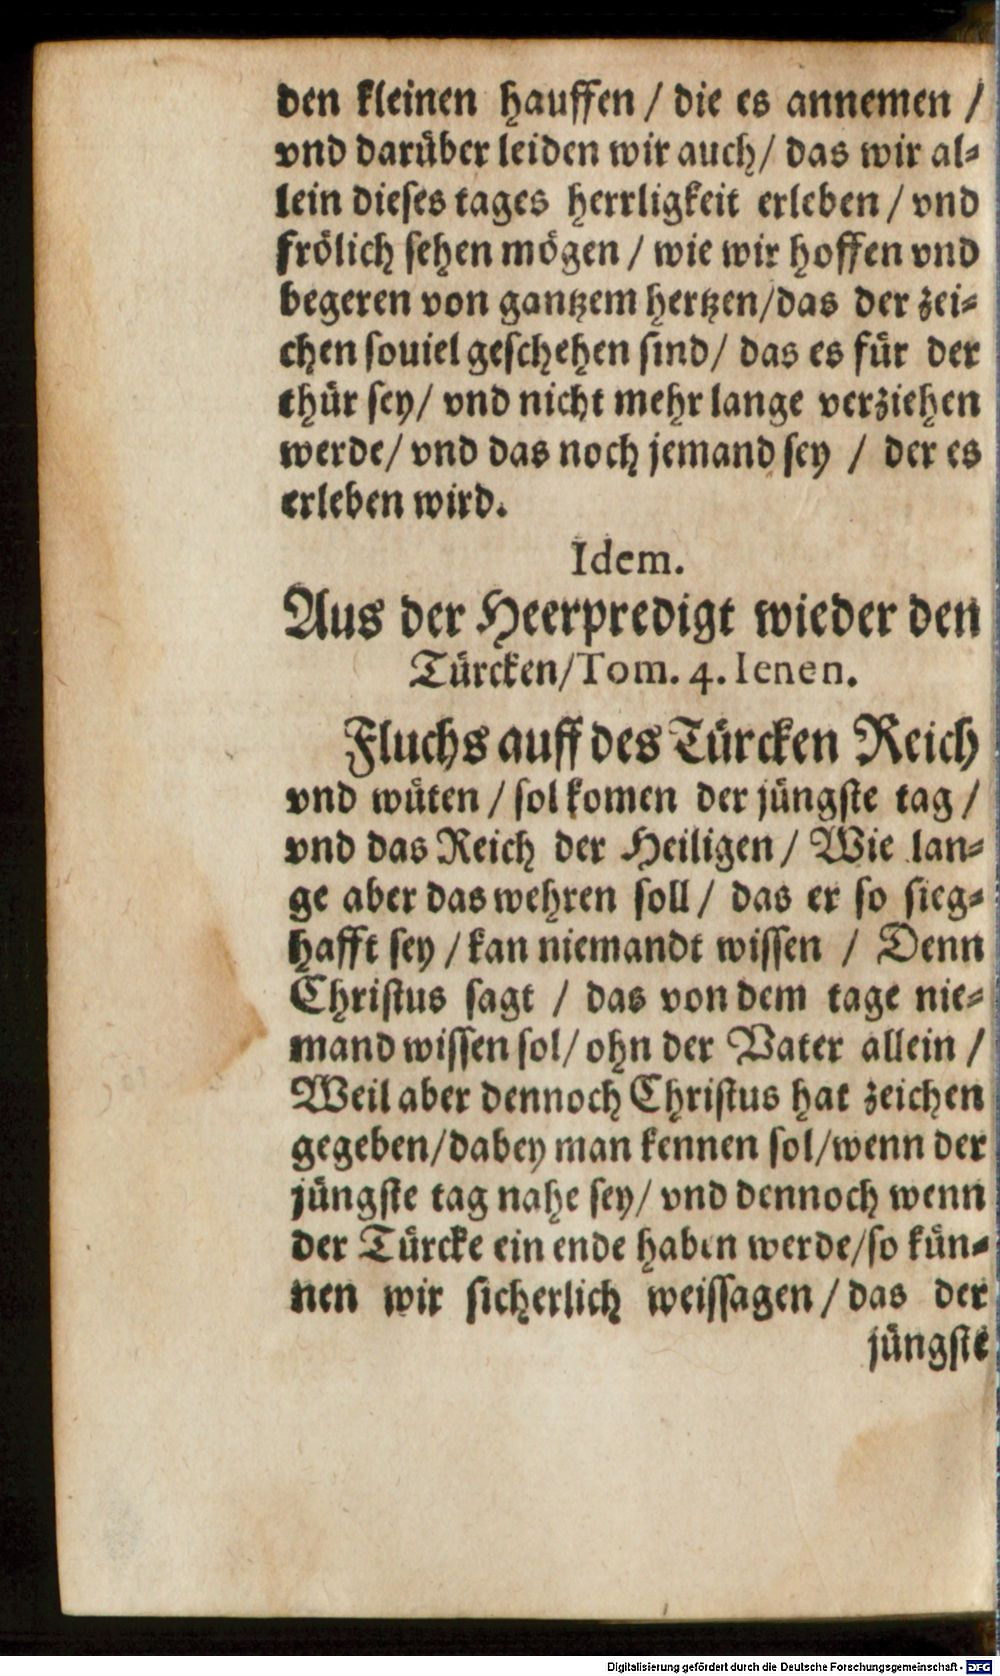 den kleinen hauffen / die es annemen /
vnd darüber leiden wir auch / das wir al-
lein dieses tages herrligkeit erleben / vnd
frölich sehen mögen / wie wir hoffen vnd
begeren von gantzem hertzen / das der zei-
chen souiel geschehen sind / das es für der
thür sey / vnd nicht mehr lange verziehen
werde / vnd das noch jemand sey / der es
erleben wird.
Idem.
Aus der Heerpredigt wieder den
Türcken / Tom. 4. Ienen.
Fluchs auff des Türcken Reich
vnd wüten / sol komen der jüngste tag /
vnd das Reich der Heiligen / Wie lan-
ge aber das wehren soll / das er so sieg-
hafft sey / kan niemandt wissen / Denn
Christus sagt / das von dem tage nie-
mand wissen sol / ohn der Vater allein /
Weil aber dennoch Christus hat zeichen
gegeben / dabey man kennen sol / wenn der
jüngste tag nahe sey / vnd dennoch wenn
der Türcke ein ende haben werde / so kün-
nen wir sicherlich weissagen / das der
jüngste
Digitalisierung gefördert durch die Deutsche Forschungsgemeinschaft - DFG